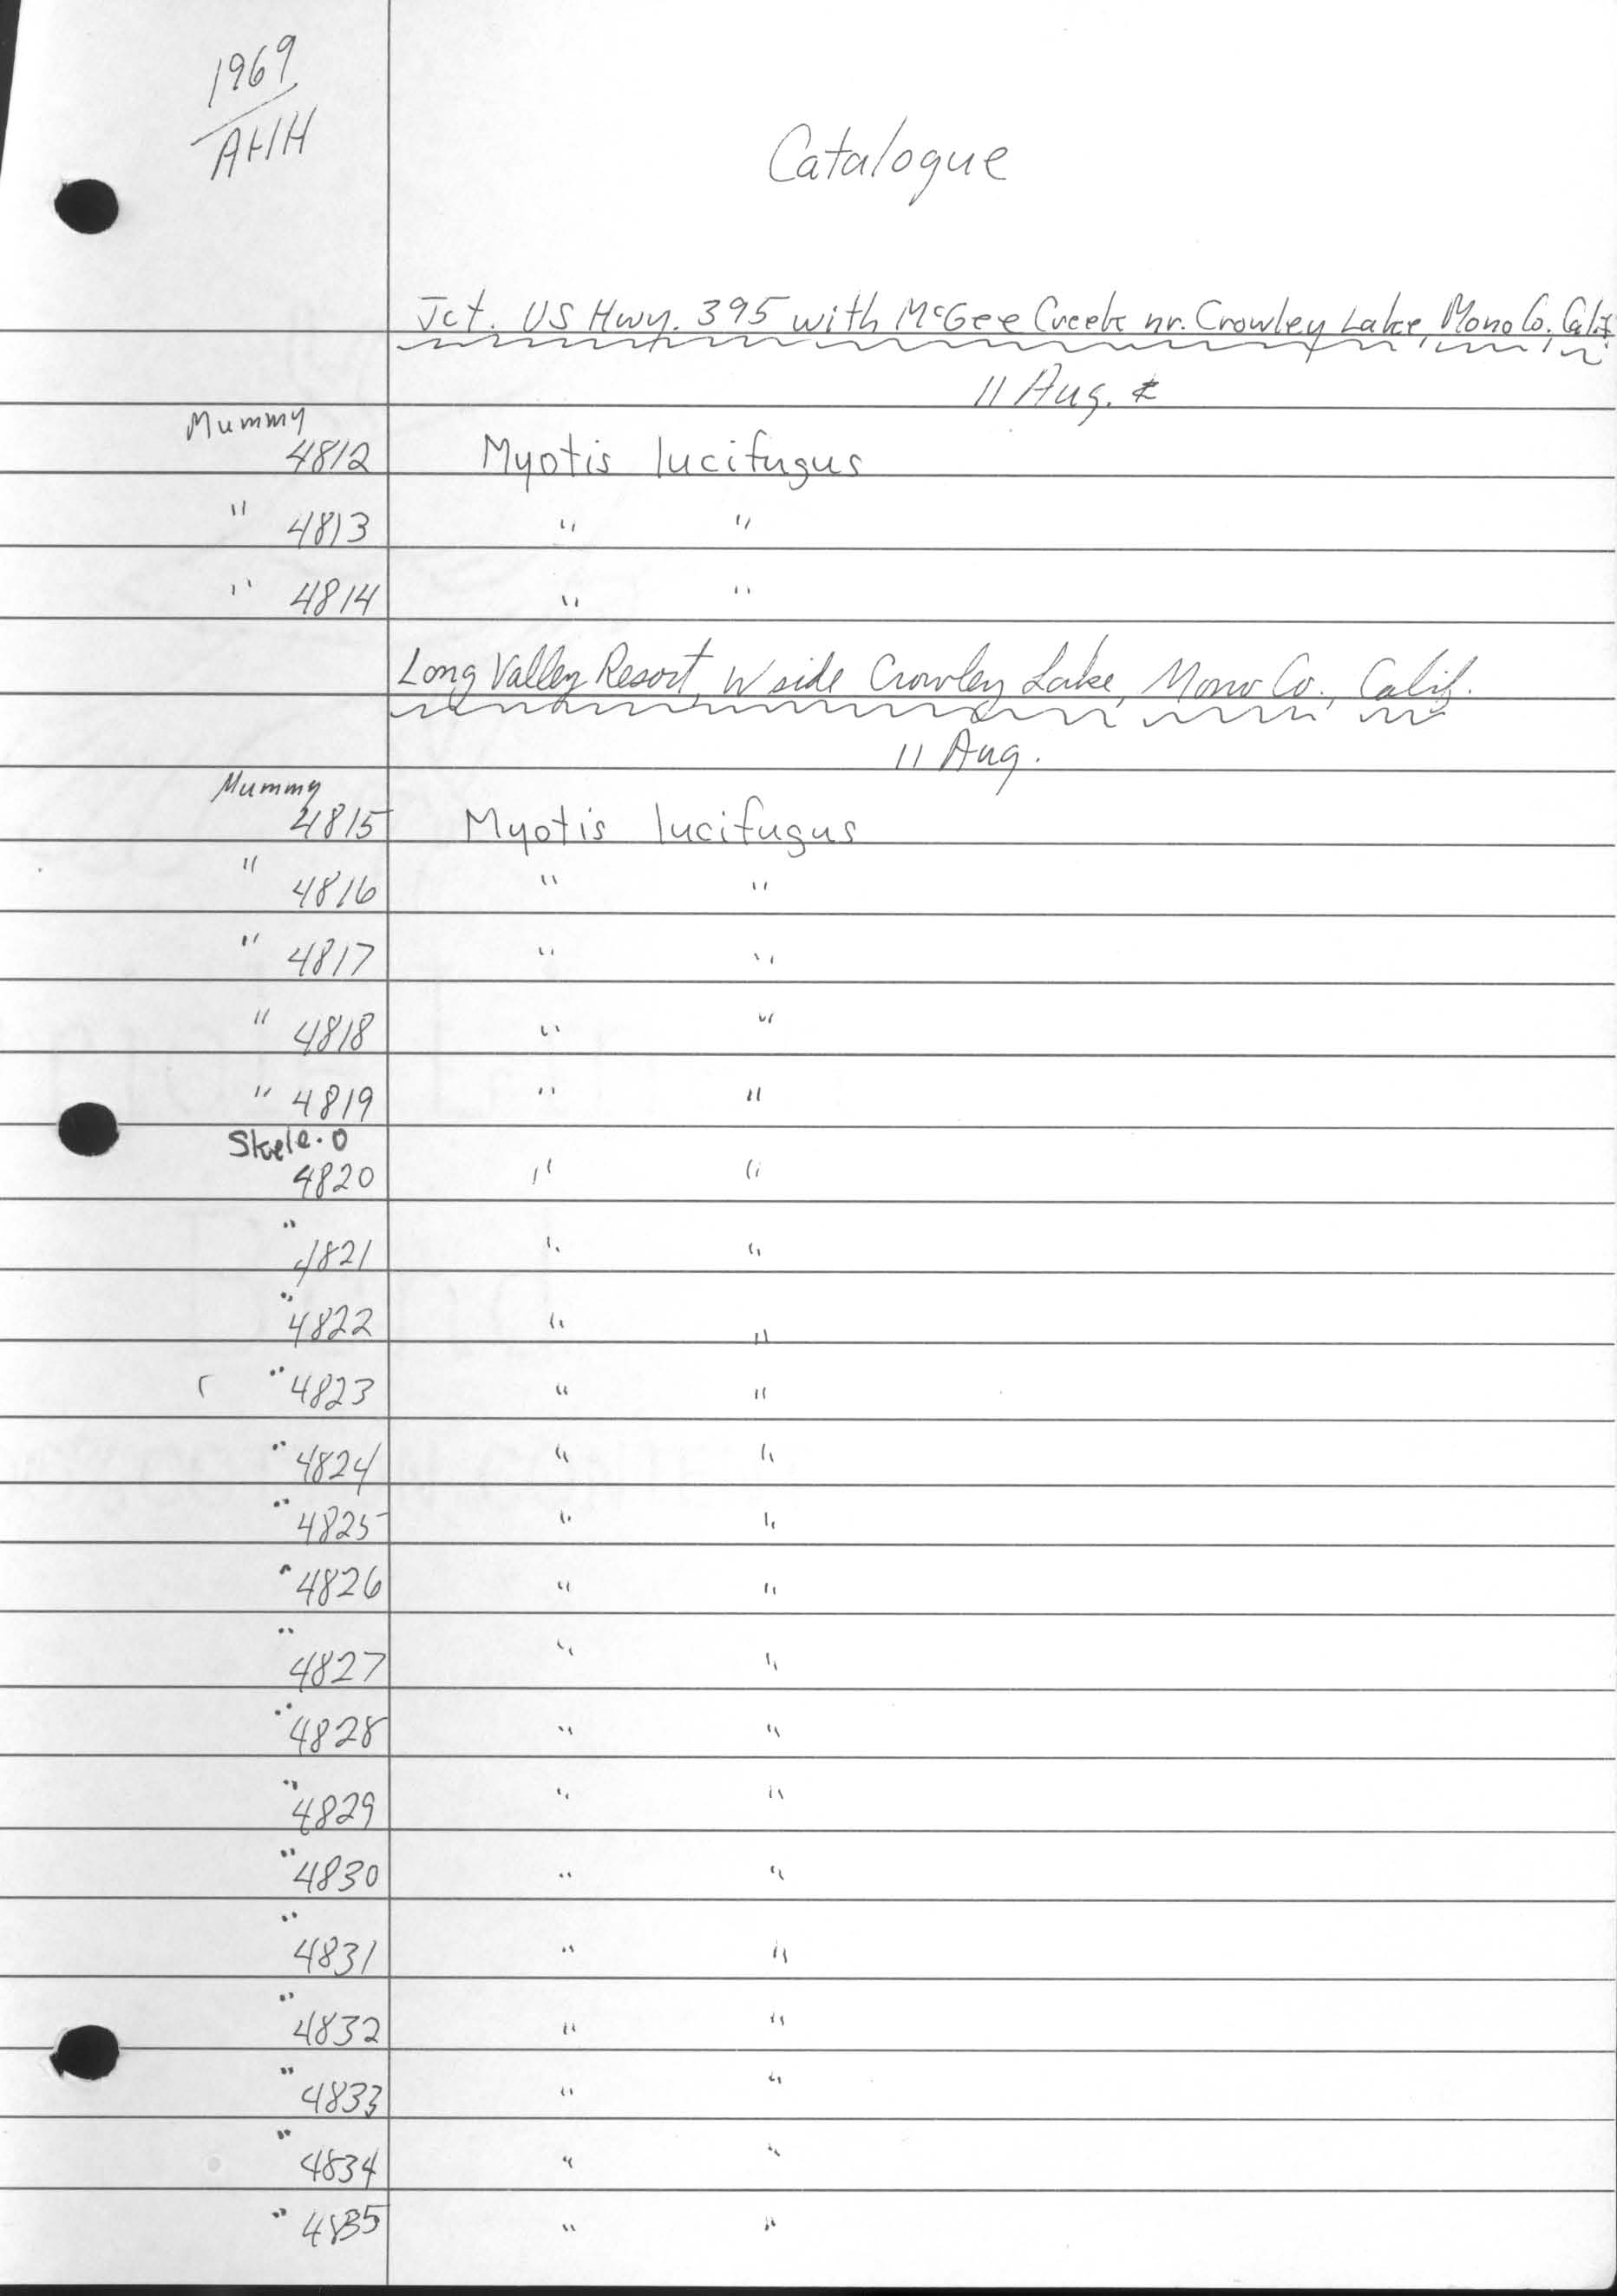 1969
AHH
Catalogue
Jct. US Hwy. 395 with McGee Creek nr. Crowley Lake, Mono Co. Calif.
11 Aug.
Mummy
4812 Myotis lucifugus
" 4813 " "
" 4814 " "
Long Valley Resort, W side Crowley Lake, Mono Co., Calif.
11 Aug.
Mummy
4815 Myotis lucifugus
" 4816 " "
" 4817 " "
" 4818 " "
" 4819 " "
Skele. O
4820 " "
" 4821 " "
" 4822 " "
" 4823 " "
" 4824 " "
" 4825 " "
" 4826 " "
" 4827 " "
" 4828 " "
" 4829 " "
" 4830 " "
" 4831 " "
" 4832 " "
" 4833 " "
" 4834 " "
" 4835 " "